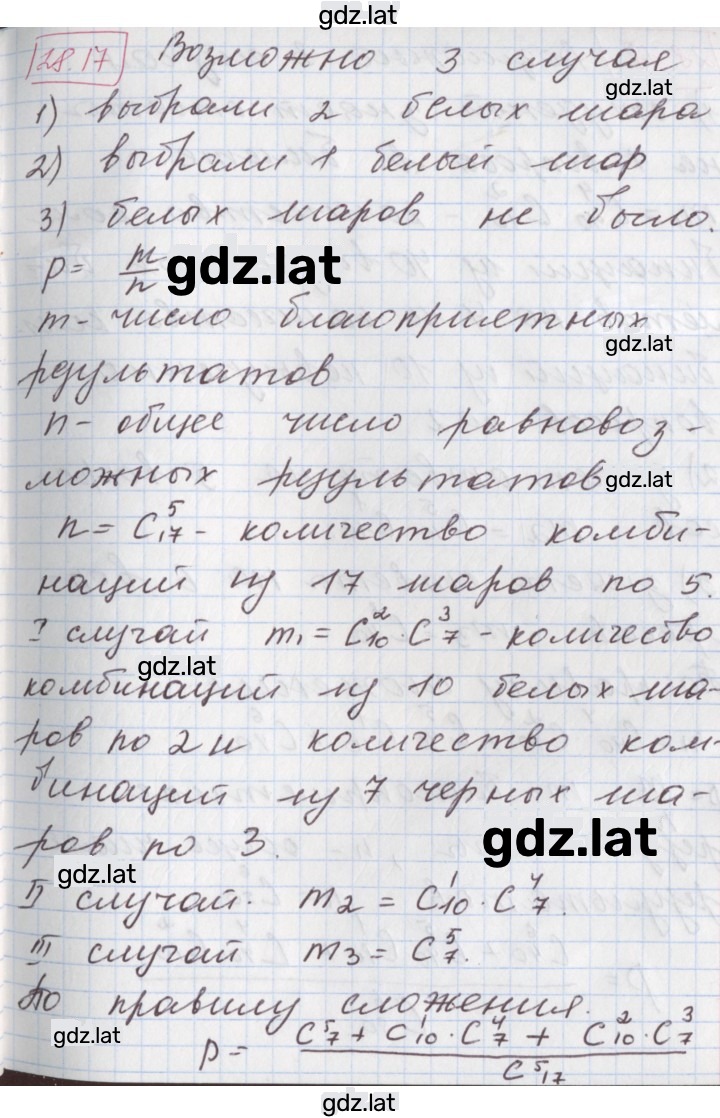 gdz.lat
28.17 Возможно 3 случая
gdz.lat
1) выбрали 2 белых шара
2) выбрали 1 белый шар
3) белых шаров не было.
p = m/n gdz.lat
m - число благоприятных
gdz.lat
результатов
n - общее число равновоз-
можных результатов gdz.lat
n = C₁₇⁵ - количество комби-
наций из 17 шаров по 5.
I случай m₁ = C₁₀² · C₇³ - количество
gdz.lat
комбинаций из 10 белых ша-
ров по 2 и количество ком-
бинаций из 7 черных ша-
ров по 3. gdz.lat
gdz.lat
II случай. m₂ = C₁₀¹ · C₇⁴.
III случай m₃ = C₇⁵.
По правилу сложения.
p = (C₇⁵ + C₁₀¹ · C₇⁴ + C₁₀² · C₇³) / C₁₇⁵
gdz.lat
gdz.lat